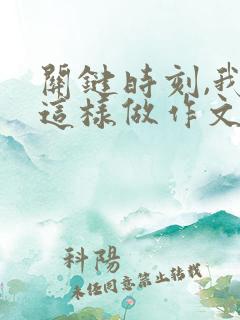 關鍵時刻,我
這樣做作文
科陽
未任同意禁止轉載